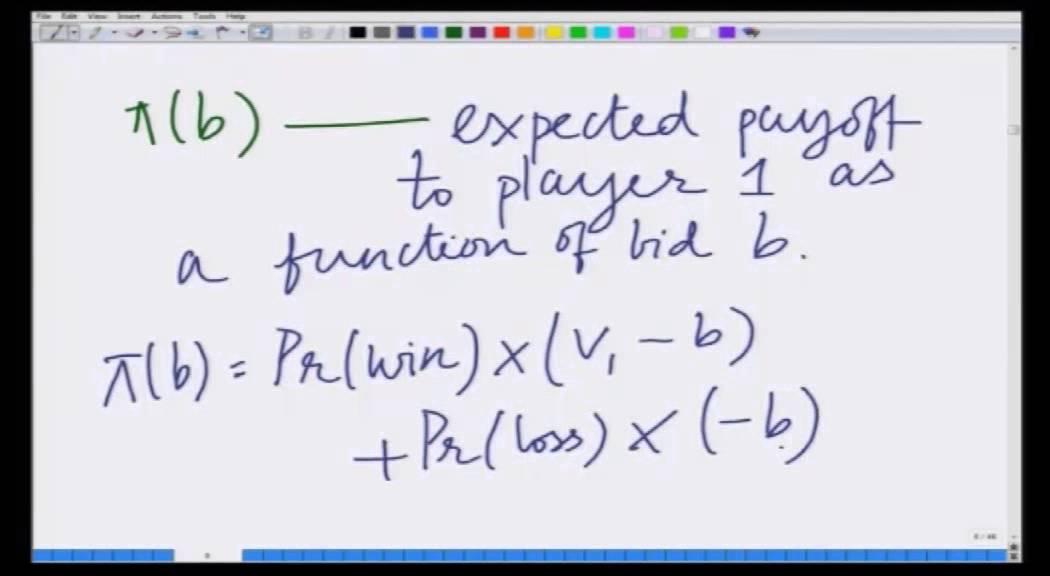 File Edit View Insert Actions Tools Help
π(b) — expected payoff
to player 1 as
a function of bid b.
π(b) = Pr(win) × (V₁ - b)
+ Pr(loss) × (-b)